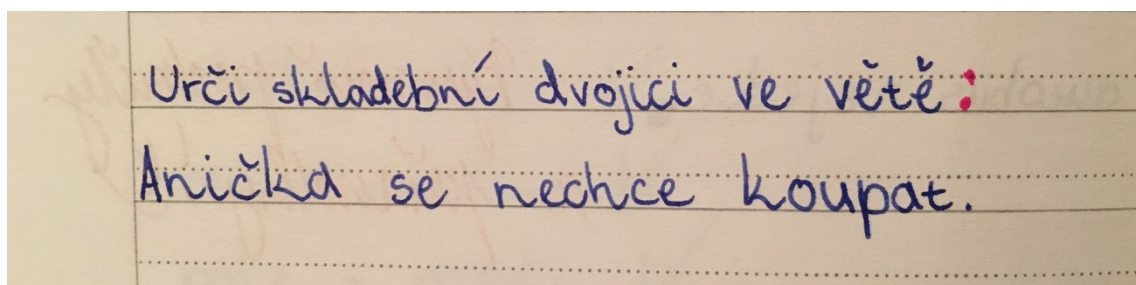 Urči skladební dvojici ve větě:
Anička se nechce koupat.